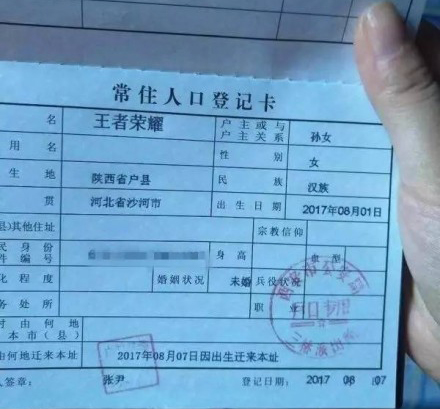 常住人口登记卡
名 王者荣耀 户主或与户主关系 孙女
用名 性别 女
生地 陕西省户县 民族 汉族
贯 河北省沙河市 出生日期 2017年08月01日
县)其他住址 宗教信仰
民身份件编号 身高 血型
化程度 婚姻状况 未婚 兵役状况
务处所 职业
时由何地本市(县)
由何地迁来本址 2017年08月07日因出生迁来本址
人签章: 张尹 登记日期: 2017 08 07